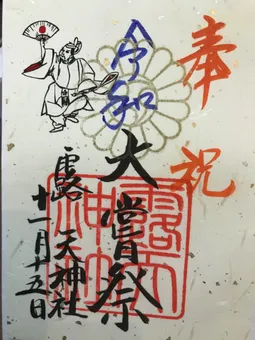 奉祝
令和
大嘗祭
露天神社
十一月十五日
露天
神社